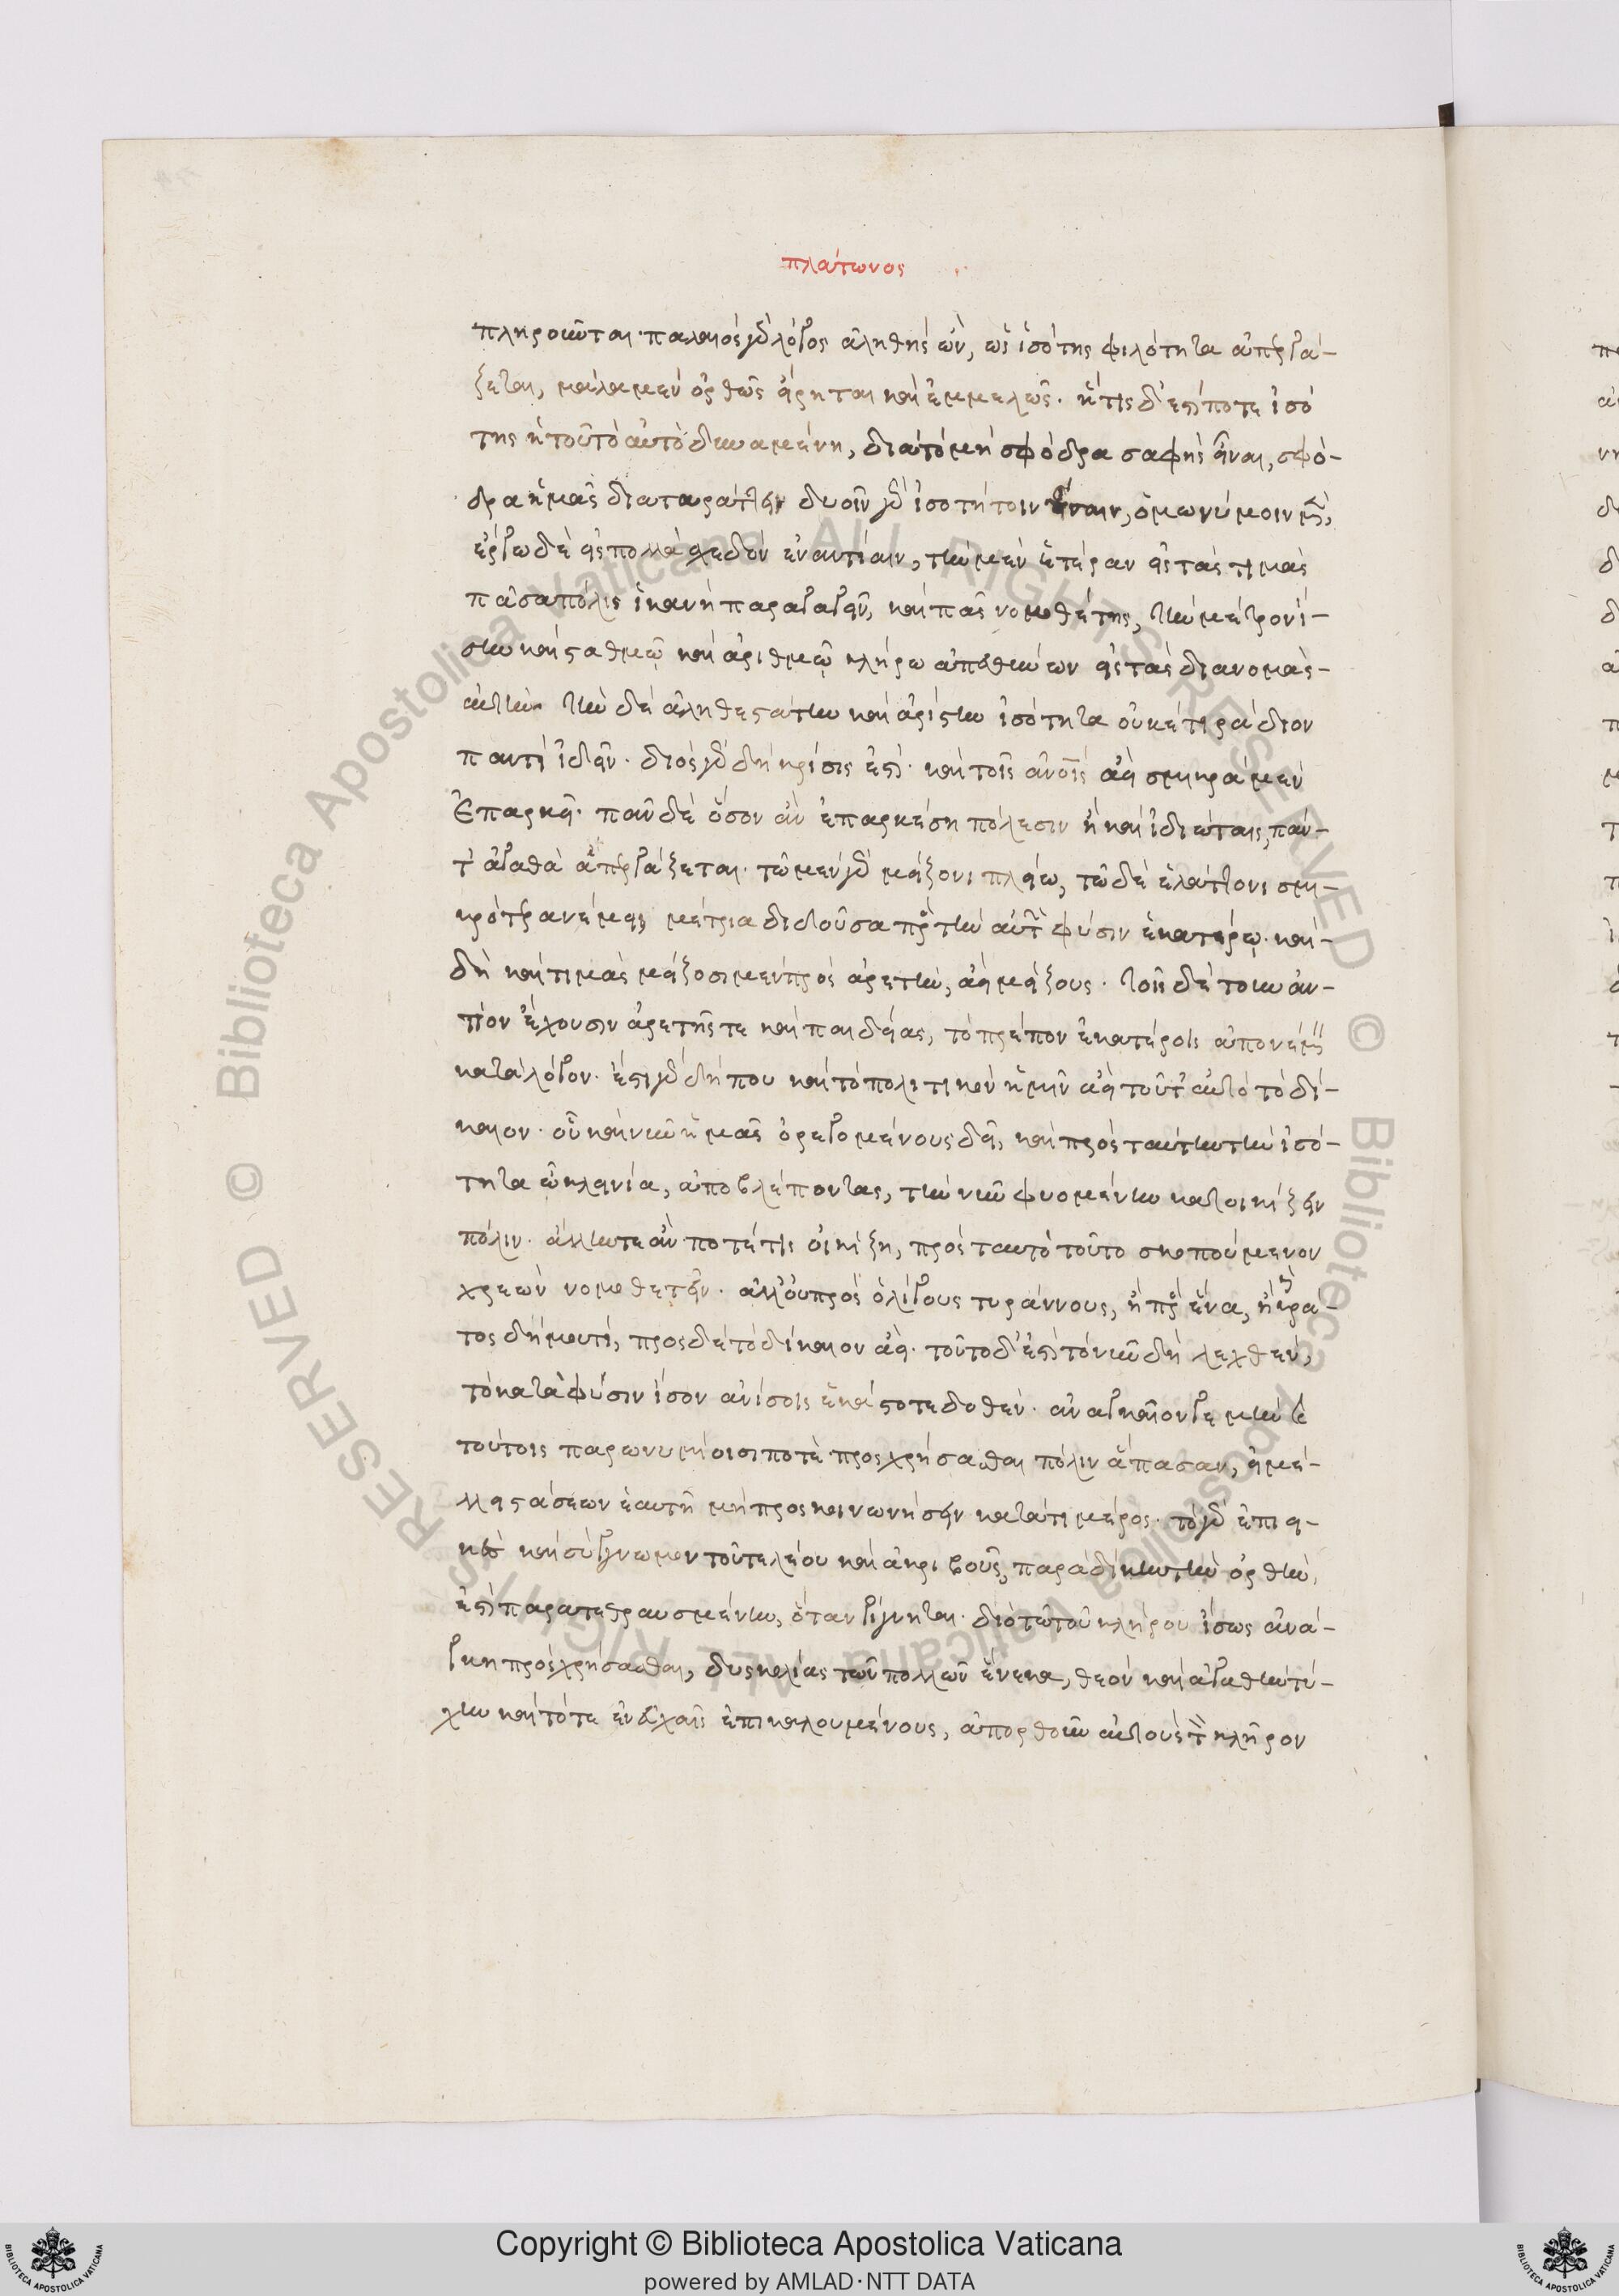 πλάτωνος
πληροῦνται· παλαιὸς γὰρ λόγος ἀληθὴς ὤν, ὡς ἰσότης φιλότητα ἀπεργά-
ζεται, μάλα μὲν ὀρθῶς εἴρηται καὶ ἐμμελῶς. ἥτις δ' ἐστί ποτε ἰσό
της ἡ τοῦτο αὐτὸ δυναμένη, διὰ τὸ μὴ σφόδρα σαφὴς εἶναι, σφό-
δρα ἡμᾶς διαταράττει δυοῖν γὰρ ἰσοτήτοιν, ὁμωνύμοιν μὲν,
ἔργω δὲ εἰς πολλὰ σχεδὸν ἐναντίαιν, τὴν μὲν ἑτέραν εἰς τὰς τιμὰς
πᾶσα πόλις ἱκανὴ παραγαγεῖν, καὶ πᾶς νομοθέτης, τὴν μέτρον ἴ-
σην καὶ σταθμῷ καὶ ἀριθμῷ κλήρω ἀπευθύνων εἰς τὰς διανομὰς
αὐτήν. τὴν δὲ ἀληθεστάτην καὶ ἀρίστην ἰσότητα οὐκέτι ῥάδιον
παντὶ ἰδεῖν. διὸς γὰρ δὴ κρίσις ἐστί. καὶ τοῖς ἀνοις ἀεὶ σμικρὰ μὲν
ἐπαρκεῖ. πᾶν δὲ ὅσον ἂν ἐπαρκέση πόλεσιν ἢ καὶ ἰδιώταις, πάν-
τ' ἀγαθὰ ἀπεργάζεται. τῶ μὲν γὰρ μείζονι πλείω, τῶ δὲ ἐλάττονι σμι-
κρότερα νέμει, μέτρια διδοῦσα πρὸς τὴν αὐτῶν φύσιν ἑκατέρῳ. καὶ
δὴ καὶ τιμὰς μείζοσι μὲν πρὸς ἀρετὴν, ἀεὶ μείζους. τοῖς δὲ τοὐναν-
τίον ἔχουσιν ἀρετῆς τε καὶ παιδείας, τὸ πρέπον ἑκατέροις ἀπονέμει
κατὰ λόγον. ἔστι γὰρ δήπου καὶ τὸ πολιτικὸν ἡμῖν ἀεὶ τοῦτ' αὐτὸ τὸ δί-
καιον. οὗ καὶ νῦν ἡμᾶς ὀρεγομένους δεῖ, καὶ πρὸς ταύτην τὴν ἰσό-
τητα ὦ κλεινία, ἀποβλέποντας, τὴν νῦν φυομένην κατοικίζειν
πόλιν. ἄλλην τε ἄν ποτέ τις οἰκίζη, πρὸς ταυτὸ τοῦτο σκοπούμενον
χρεὼν νομοθετεῖν. ἀλλ' οὐ πρὸς ὀλίγους τυράννους, ἢ πρὸς ἕνα, ἢ κρά-
τος δήμου τι, προς δὲ τὸ δίκαιον ἀεί. τοῦτο δ' ἐστὶ τὸ νῦν δὴ λεχθέν,
τὸ κατὰ φύσιν ἴσον ἀνίσοις ἑκάστοτε δοθέν. ἀναγκαῖον γε μὴν καὶ
τούτοις παρωνυμίοισι ποτὲ προσχρήσασθαι πόλιν ἅπασαν, εἰ μέλ-
λει στάσεων ἑαυτῆ μὴ προσκοινωνήσειν κατά τι μέρος. τὸ γὰρ ἐπιει-
κὲς καὶ σύγγνωμον τοῦ τελέου καὶ ἀκριβοῦς, παρὰ δίκην τὴν ὀρθὴν,
ἐστὶ παρατεθραυσμένην, ὅταν γίγνηται. διὸ τῶ τοῦ κλήρου ἴσως ἀνά-
γκη προσχρήσασθαι, δυσκολίας τῶν πολλῶν ἕνεκα, θεὸν καὶ ἀγαθὴν τύ-
χην καὶ τότε ἐν εὐχαῖς ἐπικαλουμένους, ἀπορθοῦν αὐτοὺς τὸν κλῆρον
Copyright © Biblioteca Apostolica Vaticana
powered by AMLAD·NTT DATA
Biblioteca Apostolica Vaticana ALL RIGHTS RESERVED © Biblioteca Apostolica Vaticana ALL RIGHTS RESERVED ©